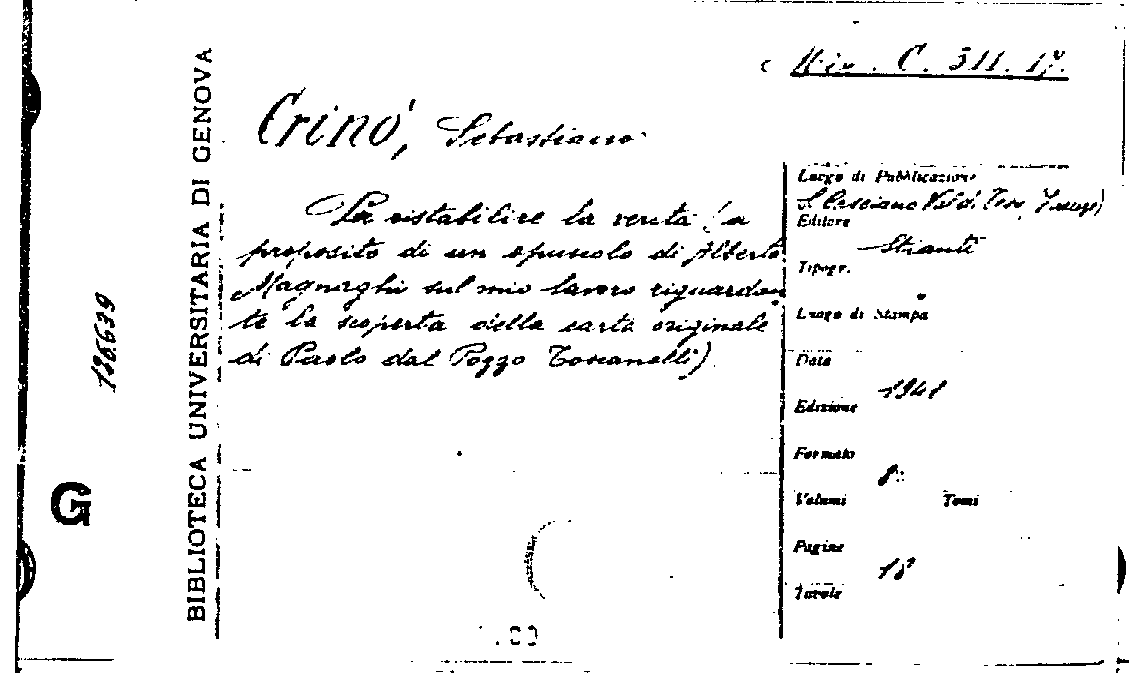 Mis. C. 311. 17.
Crinò, Sebastiano
Per ristabilire la verità (a
proposito di un opuscolo di Alberto
Magnaghi sul mio lavoro riguardan
te la scoperta della carta originale
di Paolo dal Pozzo Toscanelli)
BIBLIOTECA UNIVERSITARIA DI GENOVA
126639
G
Luogo di Pubblicazione
S. Casciano Val di
Editore
Stianti
Tipogr.
Luogo di Stampa
Data
1941
Edizione
Formato
8°
Volumi Tomi
Pagine
18
Tavole